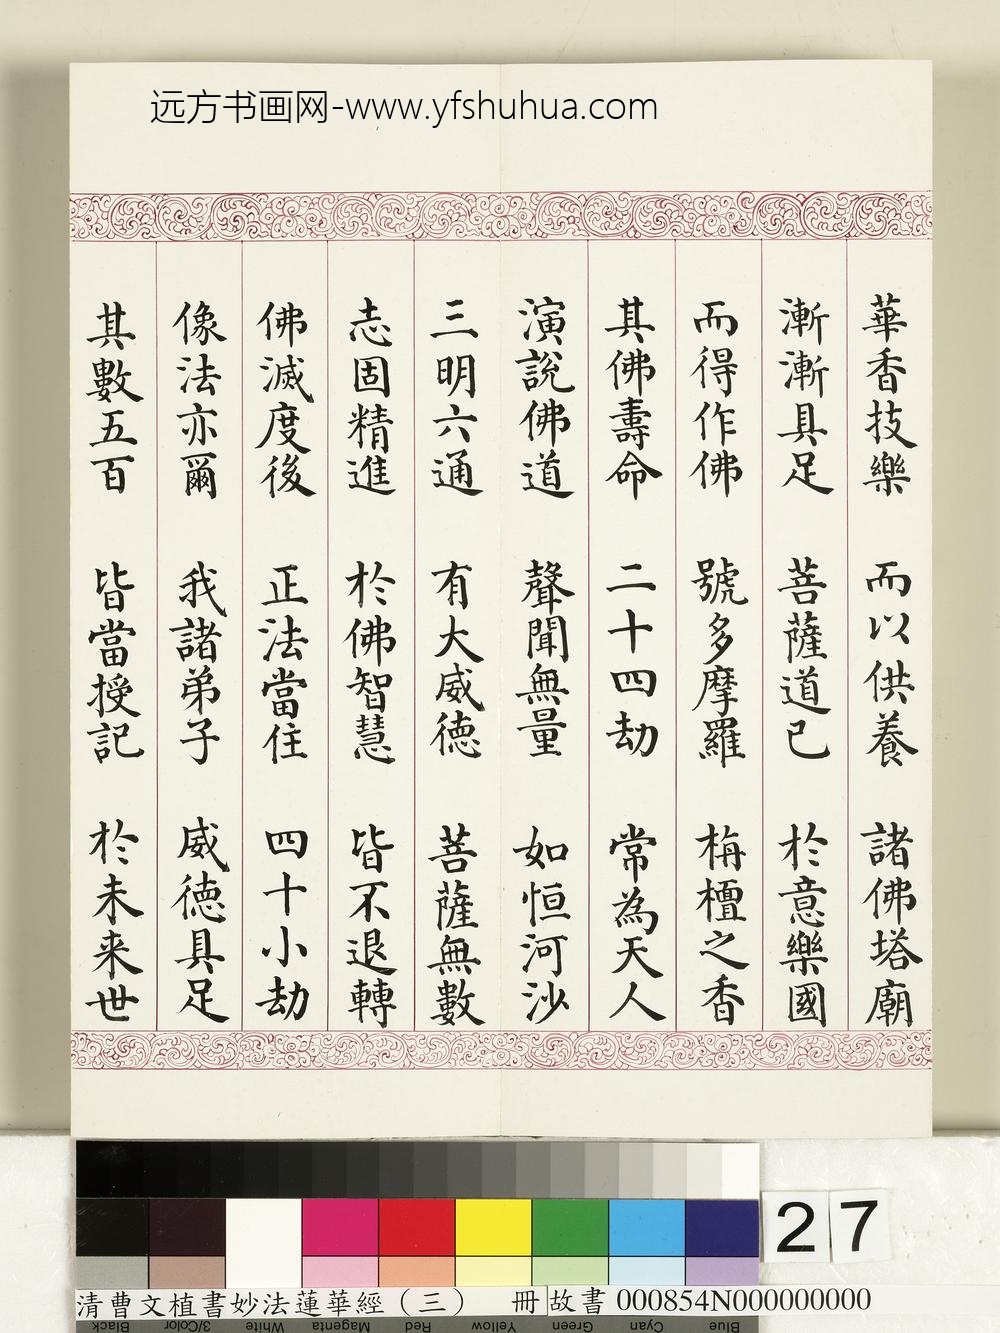 远方书画网-www.yfshuhua.com
華香技樂 而以供養 諸佛塔廟
漸漸具足 菩薩道已 於意樂國
而得作佛 號多摩羅 栴檀之香
其佛壽命 二十四劫 常為天人
演說佛道 聲聞無量 如恒河沙
三明六通 有大威德 菩薩無數
志固精進 於佛智慧 皆不退轉
佛滅度後 正法當住 四十小劫
像法亦爾 我諸弟子 威德具足
其數五百 皆當授記 於未来世
27
清曹文植書妙法蓮華經（三） 冊 故書 000854N000000000
Black 3/Color White Magenta Red Yellow Green Cyan Blue